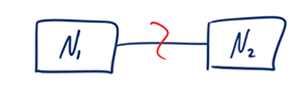 N₁
N₂